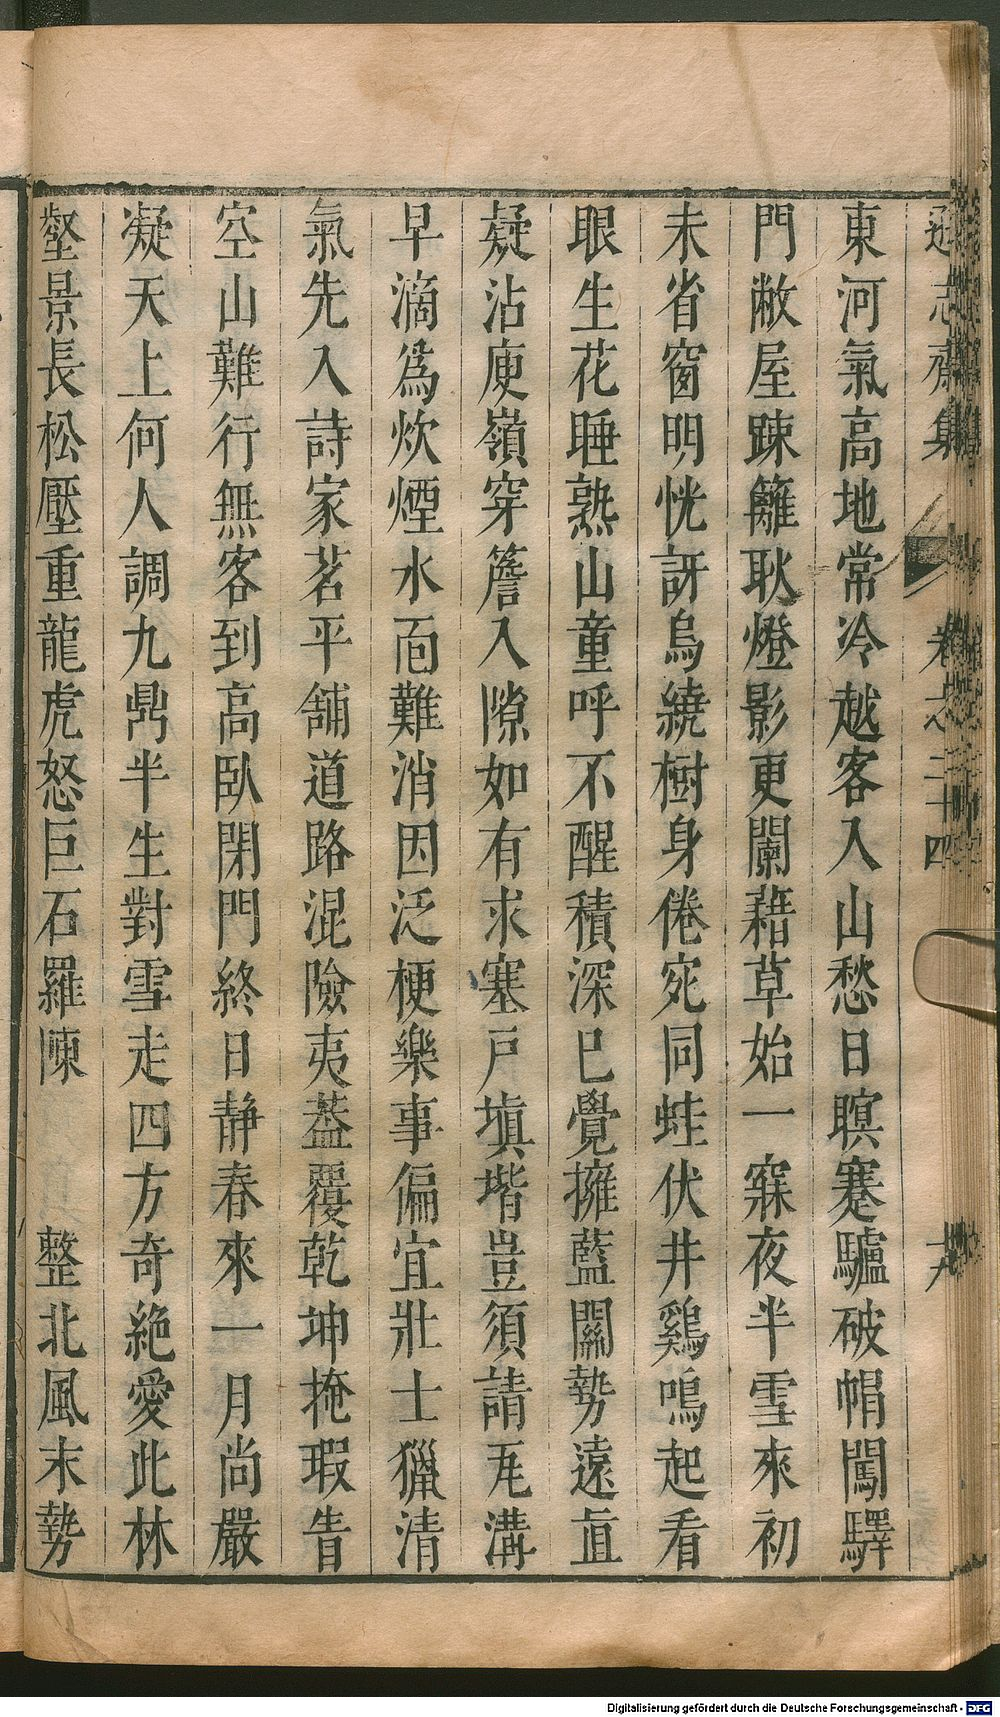 遜志齋集 卷之二十四 十九
東河氣高地常冷越客入山愁日暝蹇驢破帽闖驛
門敝屋踈籬耿燈影更闌藉草始一寐夜半雪來初
未省窗明恍訝烏繞樹身倦宛同蛙伏井鷄鳴起看
眼生花睡熟山童呼不醒積深巳覺擁藍關勢遠直
疑沾庾嶺穿簷入隙如有求塞戸塡堦豈須請瓦溝
早滴爲炊煙水面難消因泛梗樂事偏宜壯士獵清
氣先入詩家茗平舖道路混險夷葢覆乾坤掩瑕眚
空山難行無客到高臥閉門終日静春來一月尚嚴
凝天上何人調九鼎半生對雪走四方奇絶愛此林
壑景長松壓重龍虎怒巨石羅陳 整北風末勢
Digitalisierung gefördert durch die Deutsche Forschungsgemeinschaft - DFG